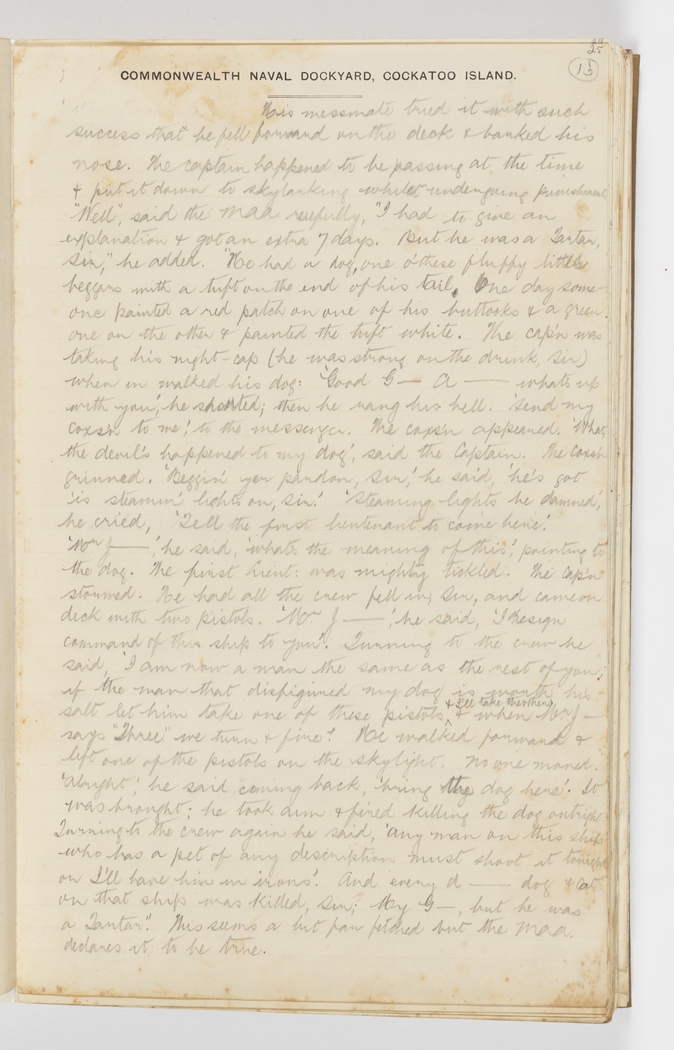 25
13
COMMONWEALTH NAVAL DOCKYARD, COCKATOO ISLAND.
His messmate tried it with such
success that he fell forward on the deck & banked his
nose. The captain happened to be passing at the time
& put it down to skylarking whilst undergoing punishment
"Well", said the Maa ruefully, "I had to give an
explanation & got an extra 7 days. But he was a Tartar,
Sir," he added. "He had a dog, one o' these fluffy little
beggars with a tuft on the end of his tail. One day some-
one painted a red patch on one of his buttocks & a green
one on the other & painted the tuft white. The cap'n was
taking his night-cap (he was strong on the drink, Sir)
when in walked his dog: 'Good G— A— what's up
with you', he snorted; then he rang his bell. 'Send my
Coxs'n to me', to the messenger. The coxs'n appeared. 'What
the devil's happened to my dog', said the Captain. The Coxs'n
grinned. 'Beggin' yer pardon, Sir', he said, 'he's got
'is steamin' lights on, Sir.' 'Steaming lights be damned',
he cried, 'Tell the first lieutenant to come here'.
'Mr J—', he said, 'what's the meaning of this', pointing to
the dog. The first Lieut: was mighty tickled. The Cap'n
stormed. He had all the crew fell in, Sir, and came on
deck with two pistols. 'Mr J—', he said, 'I resign
command of this ship to you'. Turning to the crew he
said, 'I am now a man the same as the rest of you;
if the man that disfigured my dog is worth his
salt let him take one of these pistols, & I'll take the other, & when Mr J—
says "Three" we turn & fire'. He walked forward &
left one of the pistols on the skylight. No one moved.
'Alright', he said coming back, 'bring the dog here'. It
was brought; he took aim & fired killing the dog outright
Turning to the crew again he said, 'any man on this ship
who has a pet of any description must shoot it tonight
or I'll have him in irons'. And every d— dog & cat
on that ship was killed, Sir; My G—, but he was
a Tartar". This seems a bit far fetched but the Maa.
declares it to be true.